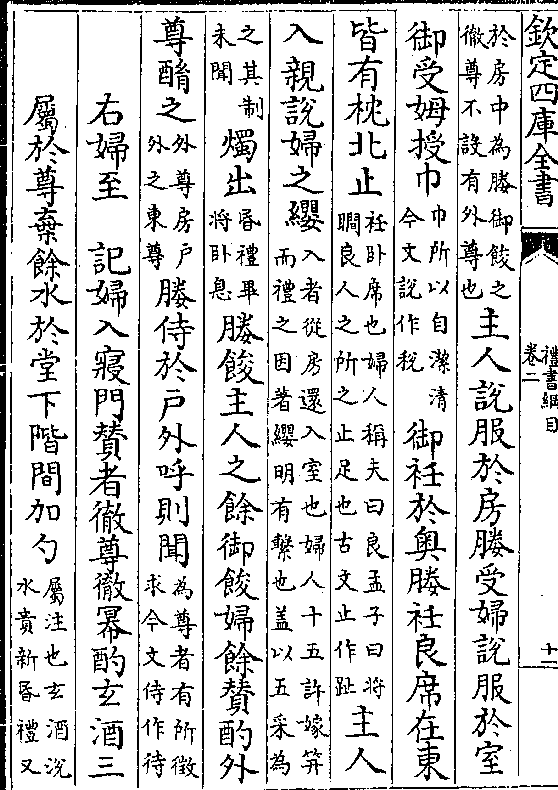 欽定四庫全書
禮書綱目
卷二
十二
於房中為媵御餕之
徹尊不設有外尊也
主人說服於房媵受婦說服於室
御受姆授巾
巾所以自潔清
今文說作稅
御衽於奥媵衽良席在東
皆有枕北止
衽卧席也婦人稱夫曰良孟子曰將
瞷良人之所之止足也古文止作趾
主人
入親說婦之纓
入者從房還入室也婦人十五許嫁笄
而禮之因著纓明有繫也蓋以五采為
之其制
未聞
燭出
昏禮畢
將卧息
媵餕主人之餘御餕婦餘贊酌外
尊酳之
外尊房戶
外之東尊
媵侍於戶外呼則聞
為尊者有所徵
求今文侍作待
右婦至
記婦入寢門贊者徹尊徹冪酌玄酒三
屬於尊棄餘水於堂下階間加勺
屬注也玄酒涗
水貴新昏禮又